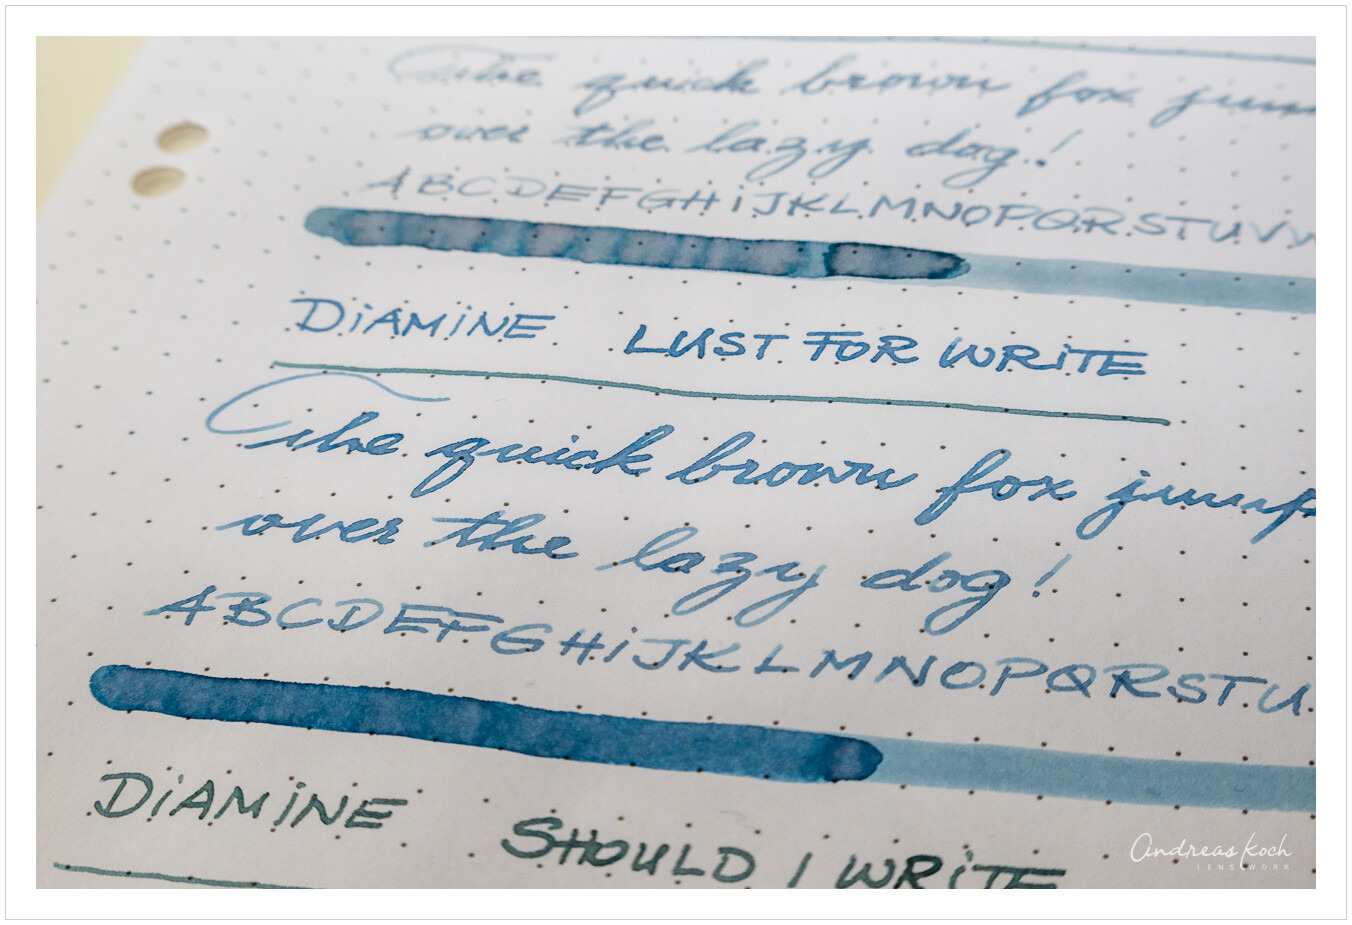 The quick brown fox jum
over the lazy dog!
ABCDEFGHiJKLMNOPQRSTUV
DiAMiNE LUST FOR WRiTE
The quick brown fox jump
over the lazy dog!
ABCDEFGHiJKLMNOPQRSTU
DiAMiNE SHOULD I WRiTE
Andreas Koch
LENSWORK